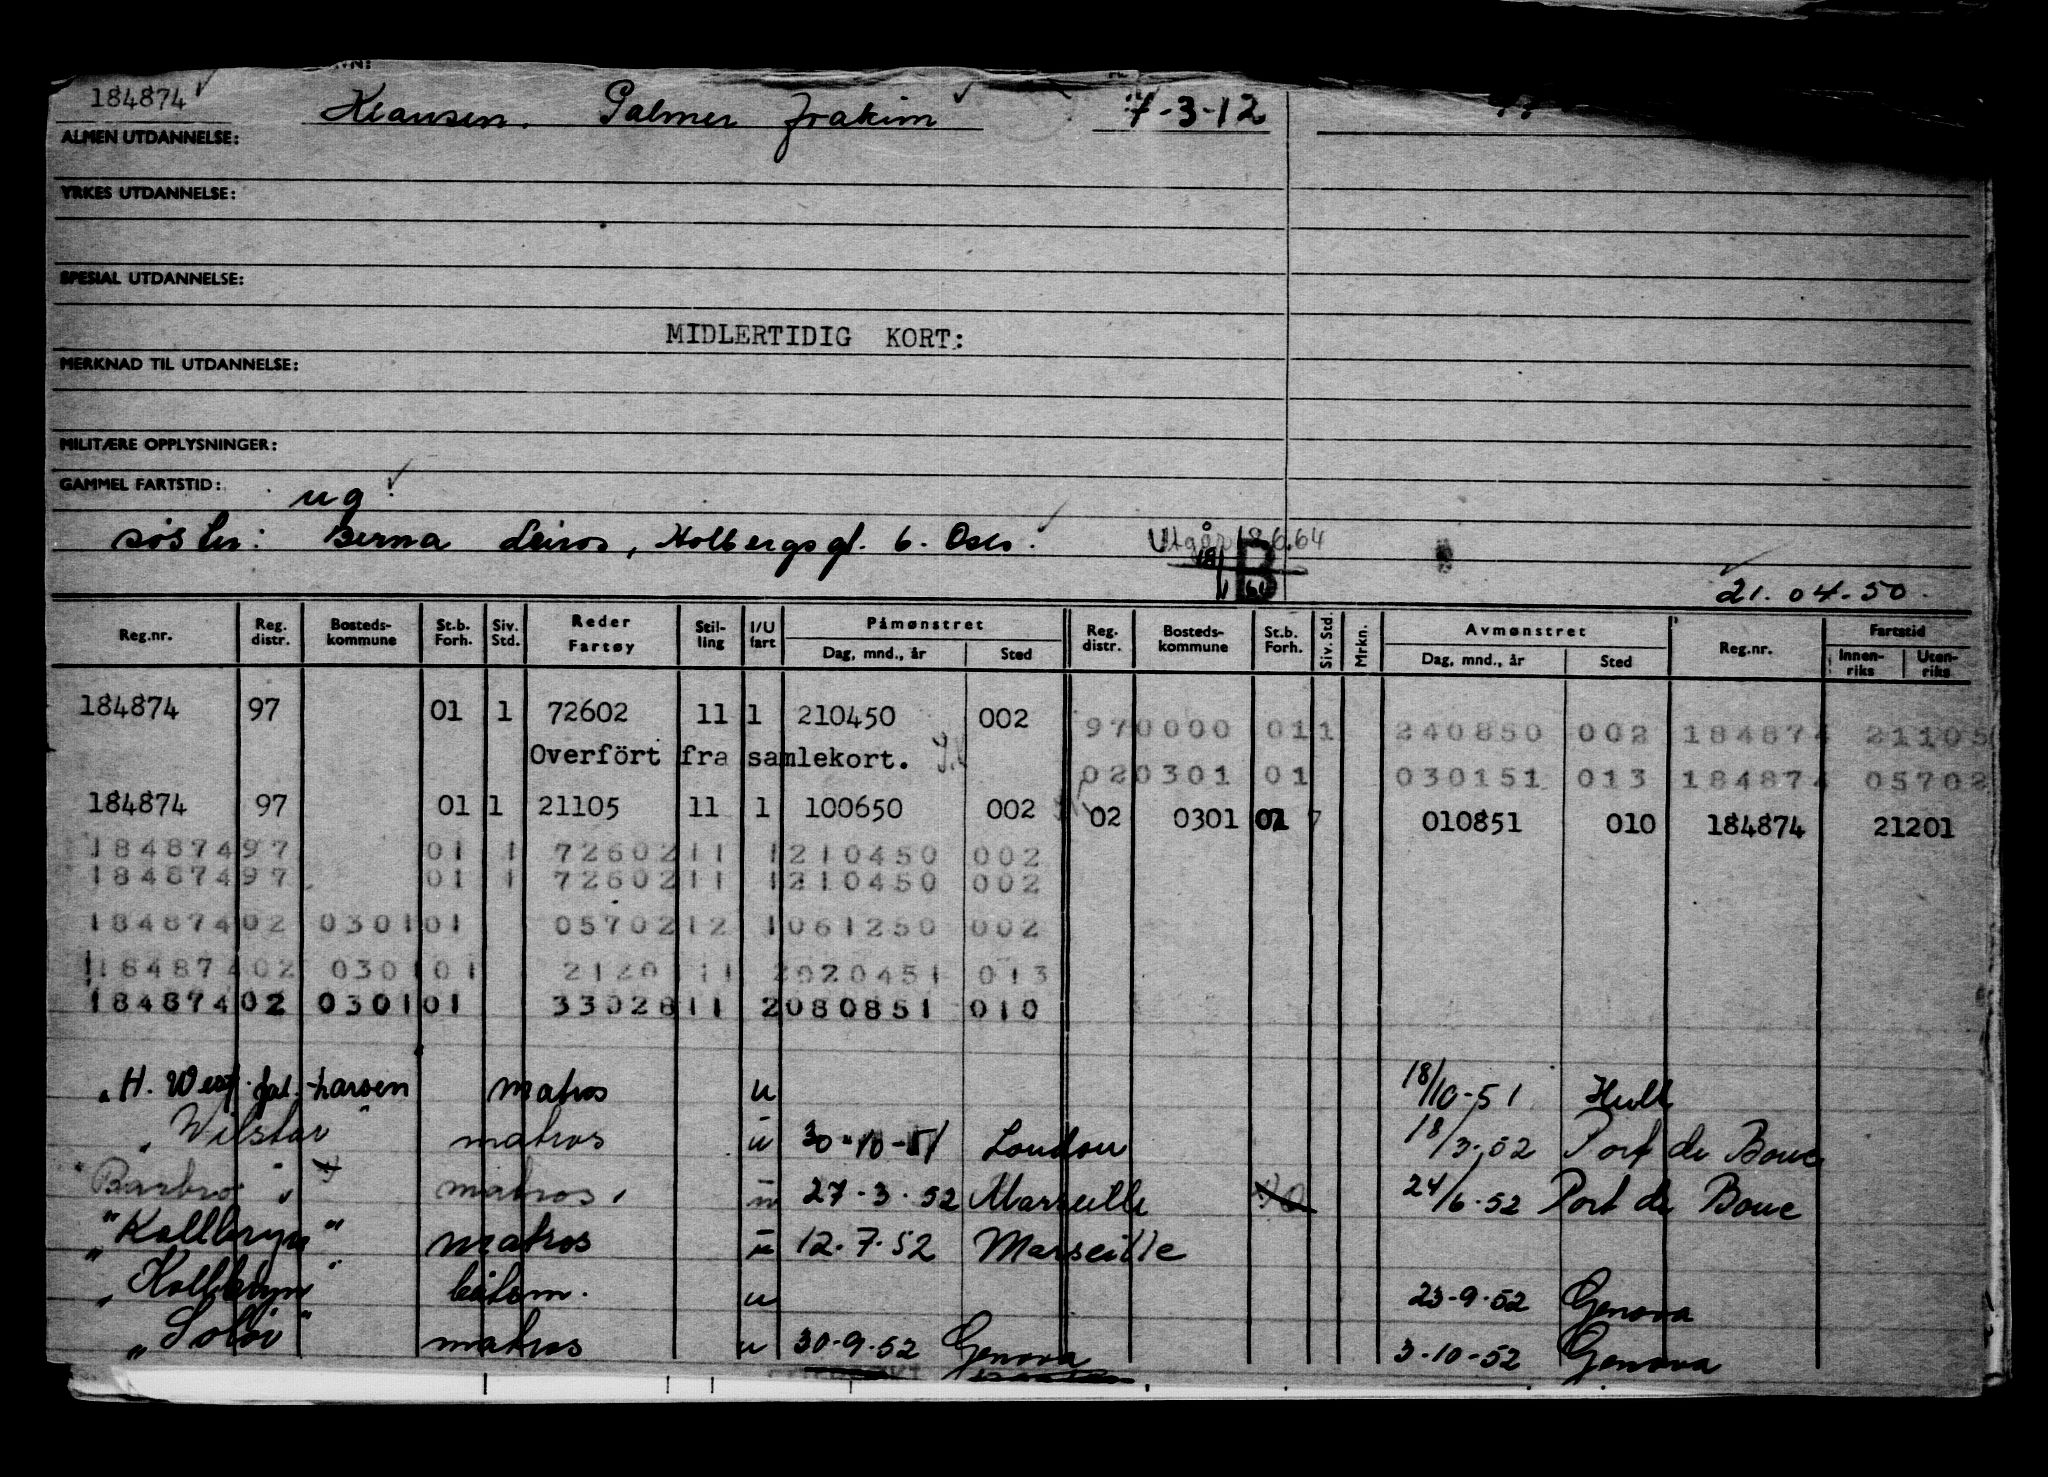 184874 Klausen. Palmer Joakim 7-3-12
ALMEN UTDANNELSE:
YRKES UTDANNELSE:
SPESIAL UTDANNELSE:
MIDLERTIDIG KORT:
MERKNAD TIL UTDANNELSE:
MILITÆRE OPPLYSNINGER:
GAMMEL FARTSTID: ug.
søster: Berna Leiros, Holbergsgt. 6. Oslo. Utgår 18.6.64
B
21.04.50.
Reg.nr. Reg. distr. Bosteds-kommune St.b. Forh. Siv. Std. Reder Fartøy Stil-ling I/U fart Påmønstret Dag, mnd., år Sted Reg. distr. Bosteds-kommune St.b. Forh. Siv. Std. Mrkn. Avmønstret Dag, mnd., år Sted Reg.nr. Fartstid Innen-riks Uten-riks
184874 97 01 1 72602 11 1 210450 002 970000 011 240850 002 184874 21105
Overført fra samlekort. 020301 01 030151 013 184874 05702
184874 97 01 1 21105 11 1 100650 002 02 0301 01 7 010851 010 184874 21201
184874 97 01 1 72602 11 1 210450 002
184874 97 01 1 72602 11 1 210450 002
184874 02 0301 01 05702 12 1 061250 002
184874 02 0301 01 2120 11 2 020451 013
184874 02 0301 01 33028 11 2 080851 010
"H. Westf. Larsen matros u 18/10-51 Hull
"Wilstar" matros u 30-10-51 London 18/3-52 Port de Bouc
"Barbro" matros u 27-3-52 Marseille 24/6-52 Port de Bouc
"Kollbryn" matros u 12-7-52 Marseille
"Kollbryn" båtsm. u 23-9-52 Genova
"Soløi" matros u 30-9-52 Genova 3-10-52 Genova